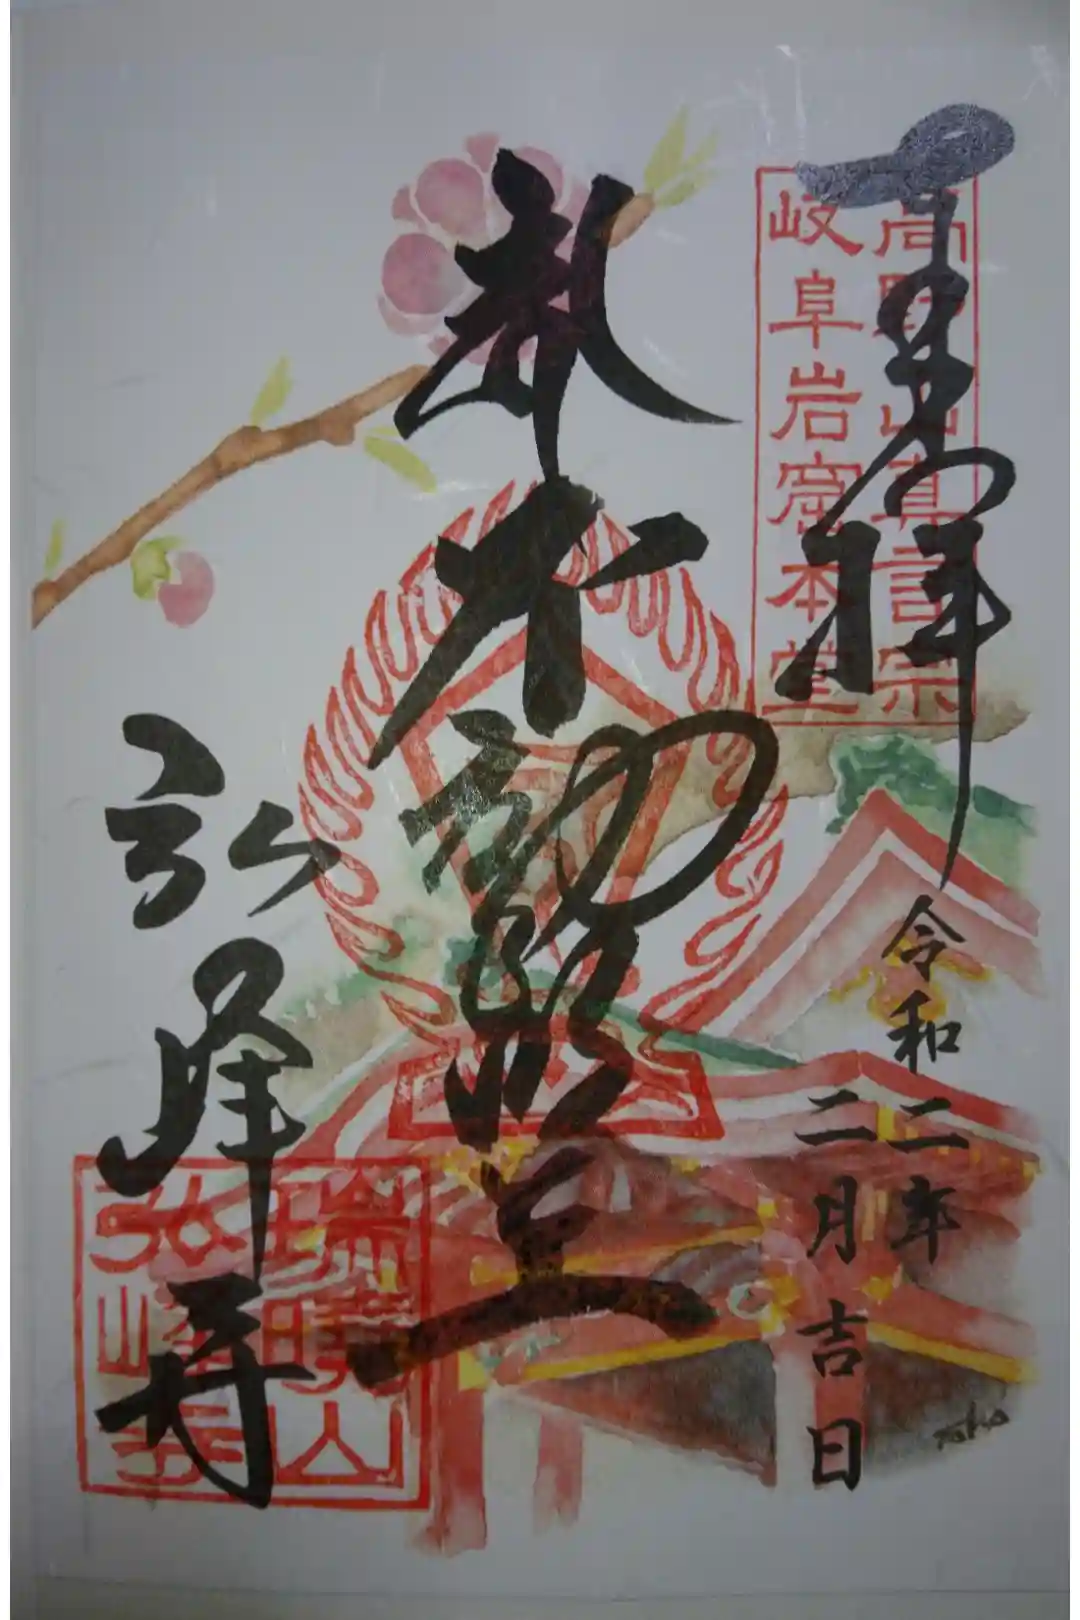 奉拝
高野山真言宗
岐阜岩窟本堂
令和二年
二月吉日
赤不動明王
弘峰寺
瑞曉山
弘峰寺